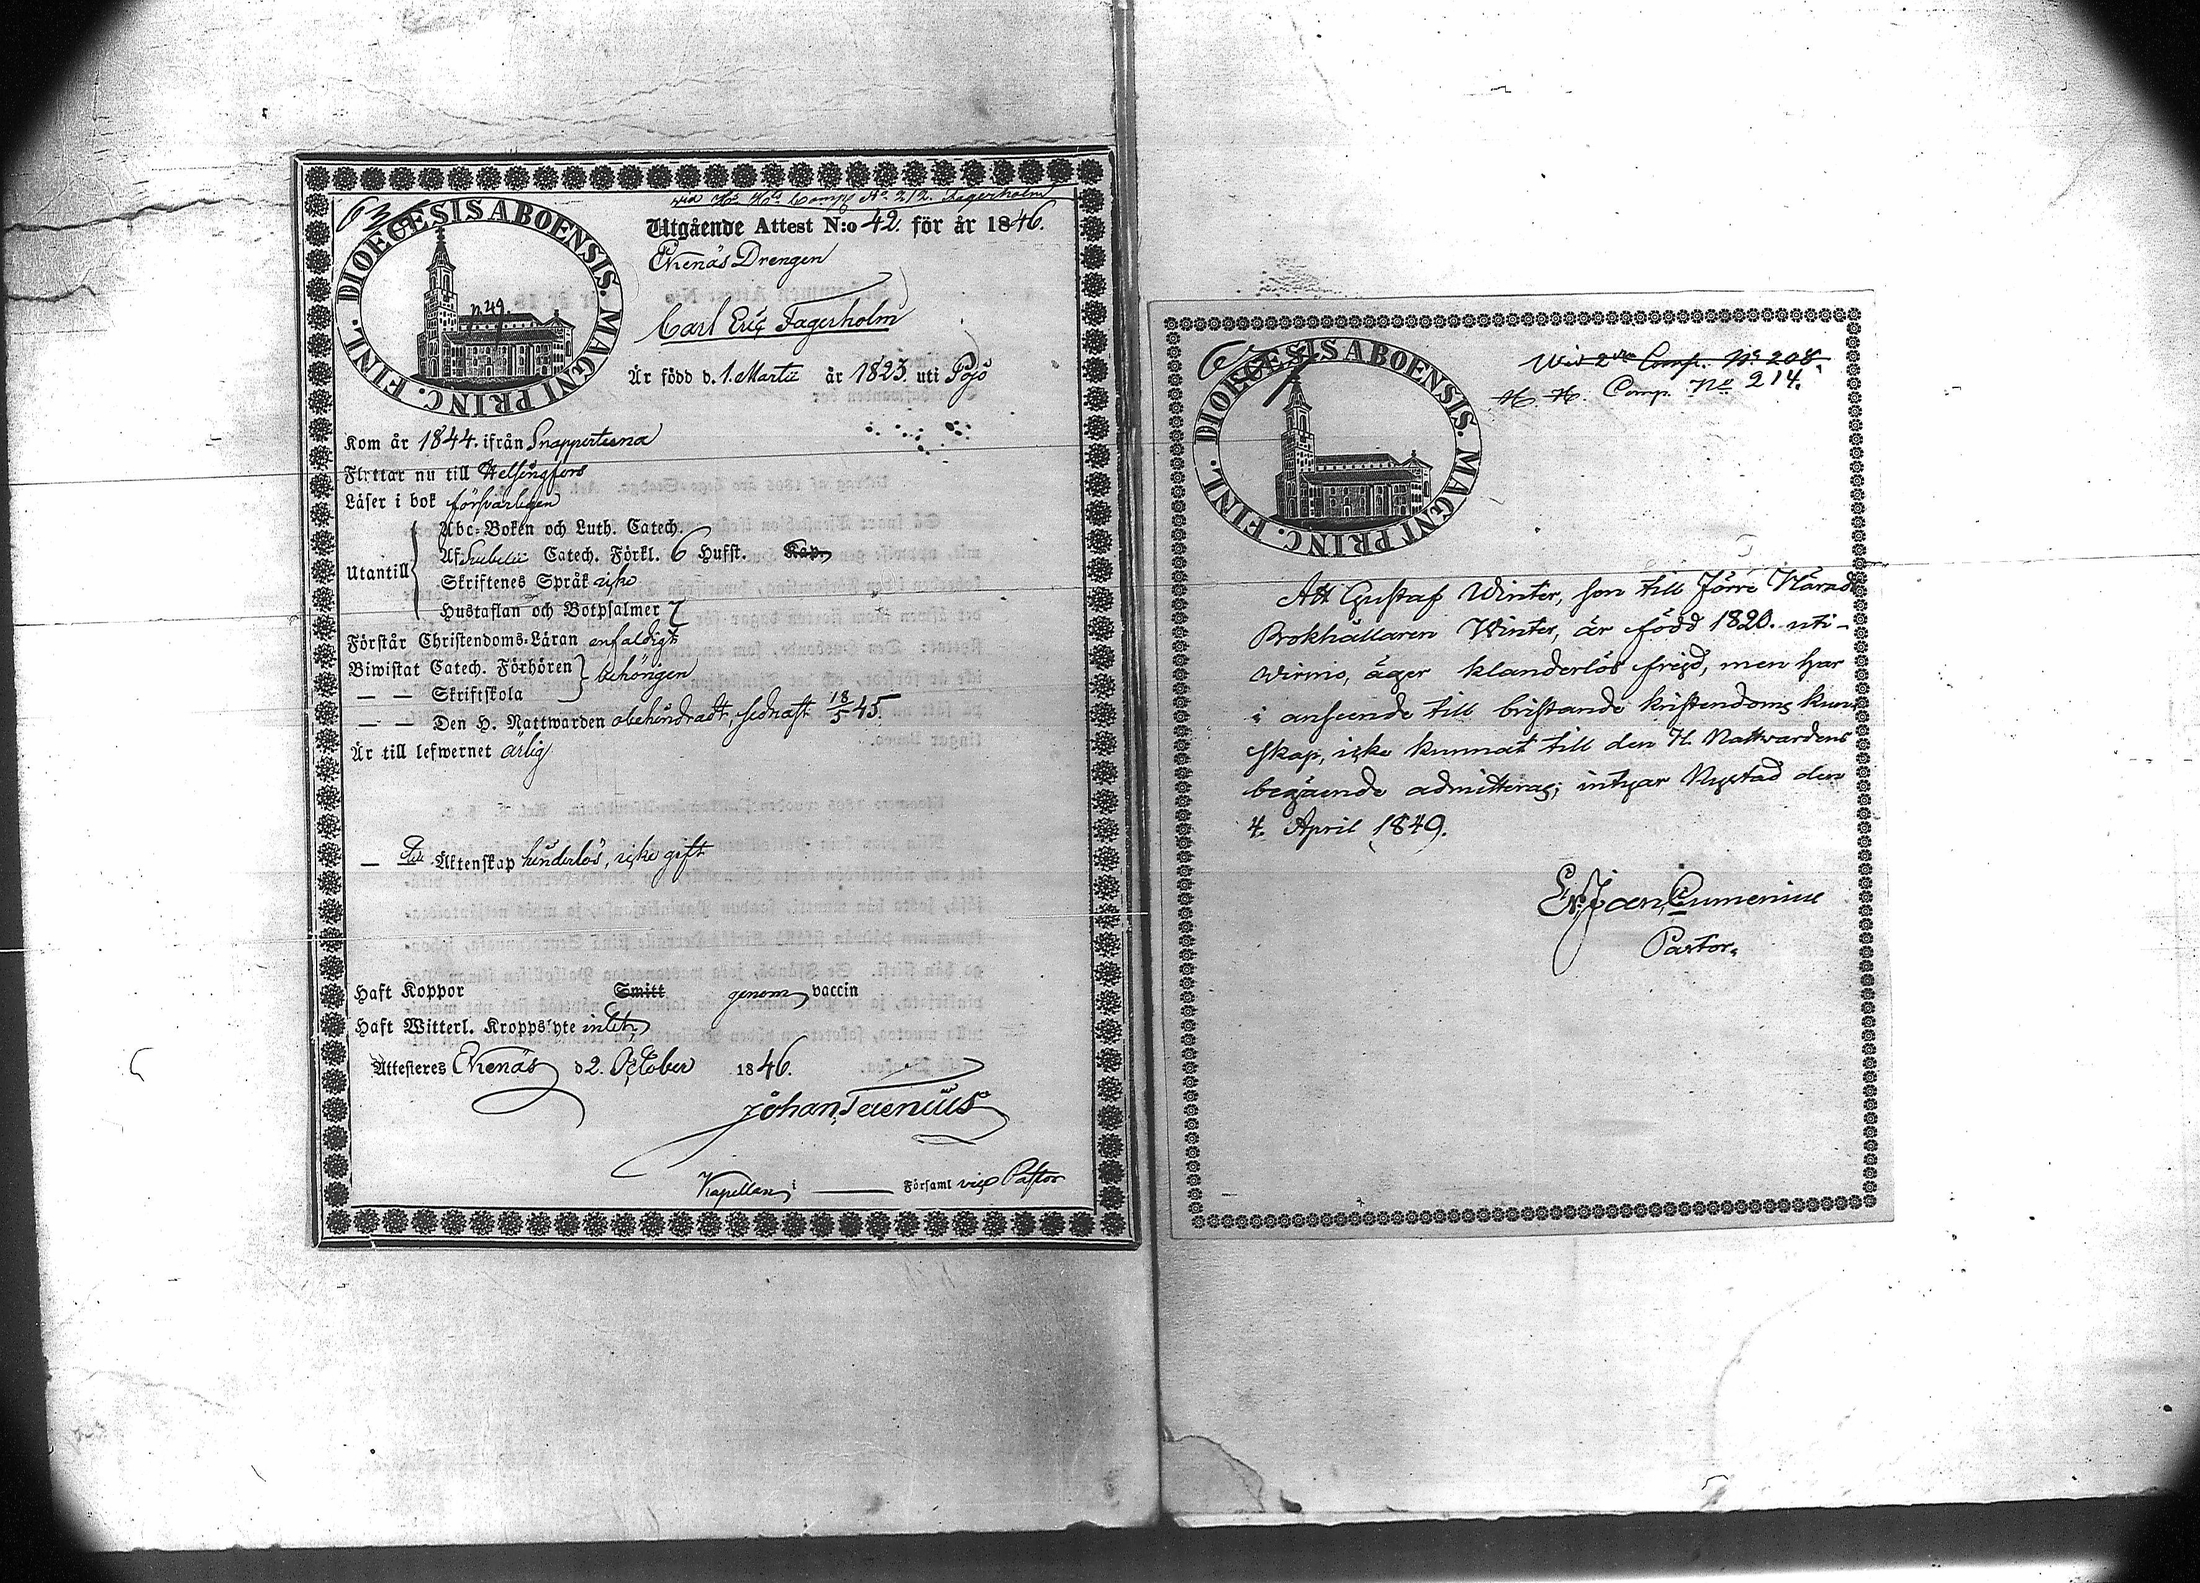 63
wid H. H. Comp. No 212. Fagerholm
DIOECESIS ABOENSIS MAGNI PRINC. FINL.
n.49.
Utgående Attest N:o 42. för år 1846.
Ekenäs Drengen
Carl Eric Fagerholm
Är född d. 1. Martii år 1823. uti Pojo
Kom år 1844. ifrån Snappertuna
Flyttar nu till Helsingfors
Läser i bok försvarligen
Utantill
Abc-Boken och Luth. Catech.
Af Svebelii Catech. Förkl. 6 Hufst. Kap.
Skriftenes Språk icke
Hustaflan och Botpsalmer
Förstår Christendoms-Läran enfaldigt
Biwistat Catech. Förhören
— — Skriftskola
behörigen
— — Den H. Nattwarden obehindradt, sednast 18/5 45.
Är till lefwernet ärlig
— Till Äktenskap hinderlös, icke gift
Haft Koppor Smitt genom vaccin
Haft Witterl. Kroppslyte intet
Attesteres Ekenäs d 2. October 1846.
Johan Terenius
Kapellan i — Församl vice Pastor
Wid 2dra Comp. No 208.
H. H. Comp. No 214.
DIOECESIS ABOENSIS. MAGNI PRINC. FINL.
Att Gustaf Winter, son till Förre Härads
Brokhållaren Winter, är född 1820. uti
Wirmo, äger klanderlös frejd, men har
i anseende till bristande kristendoms kun
skap, icke kunnat till den H. Nattvardens
begående admitteras; intygar Nystad den
4. April 1849.
Er. Joan. Cumenius
Pastor.